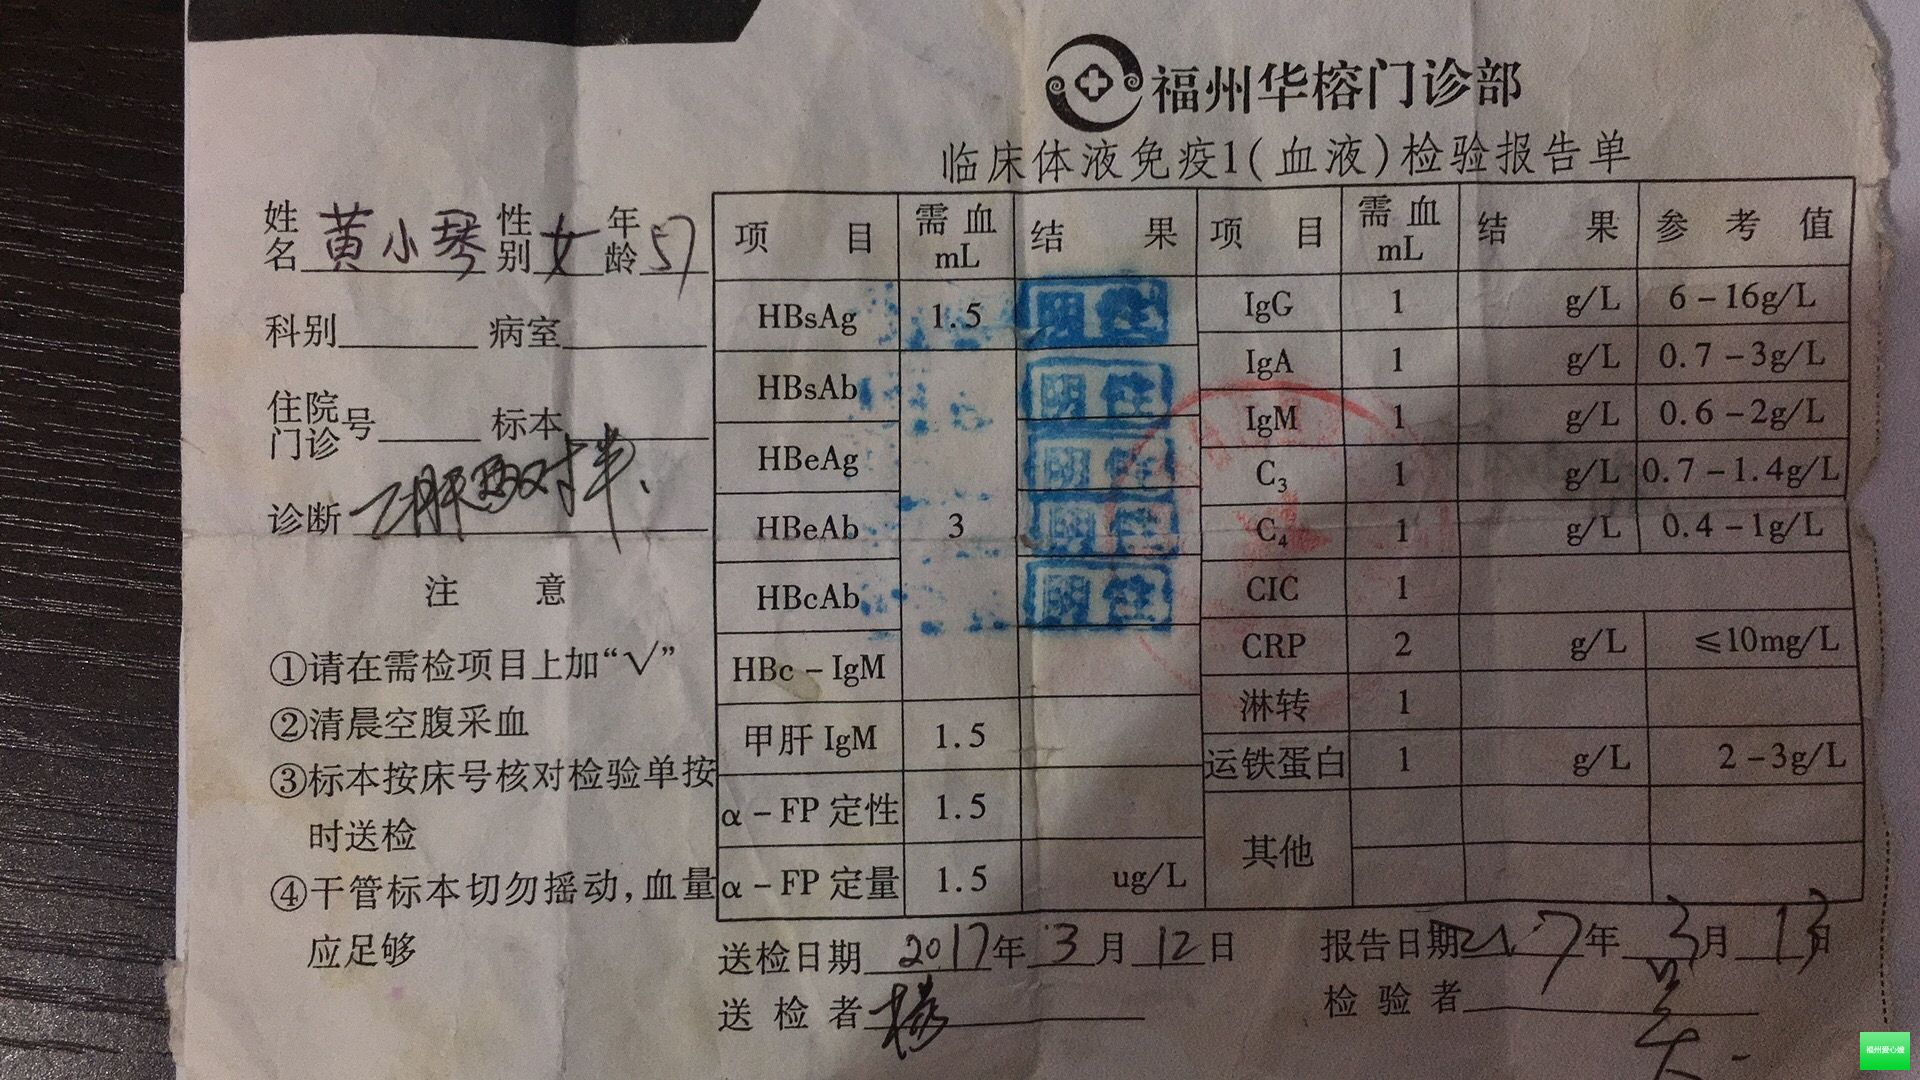 福州华榕门诊部
临床体液免疫1(血液)检验报告单
姓名 黄小琴 性别 女 年龄 57
科别 病室
住院门诊号 标本
诊断 乙肝两对半、
注 意
①请在需检项目上加“√”
②清晨空腹采血
③标本按床号核对检验单按
时送检
④干管标本切勿摇动,血量
应足够
项 目 需血 mL 结 果
HBsAg 1.5 阴性
HBsAb 阴性
HBeAg 阴性
HBeAb 3 阴性
HBcAb 阴性
HBc-IgM
甲肝 IgM 1.5
α-FP 定性 1.5
α-FP 定量 1.5 ug/L
项 目 需血 mL 结 果 参 考 值
IgG 1 g/L 6-16g/L
IgA 1 g/L 0.7-3g/L
IgM 1 g/L 0.6-2g/L
C₃ 1 g/L 0.7-1.4g/L
C₄ 1 g/L 0.4-1g/L
CIC 1
CRP 2 g/L ≤10mg/L
淋转 1
运铁蛋白 1 g/L 2-3g/L
其他
送检日期 2017年3月12日 报告日期 2017年3月13日
送检者 杨 检验者
福州爱心嫂